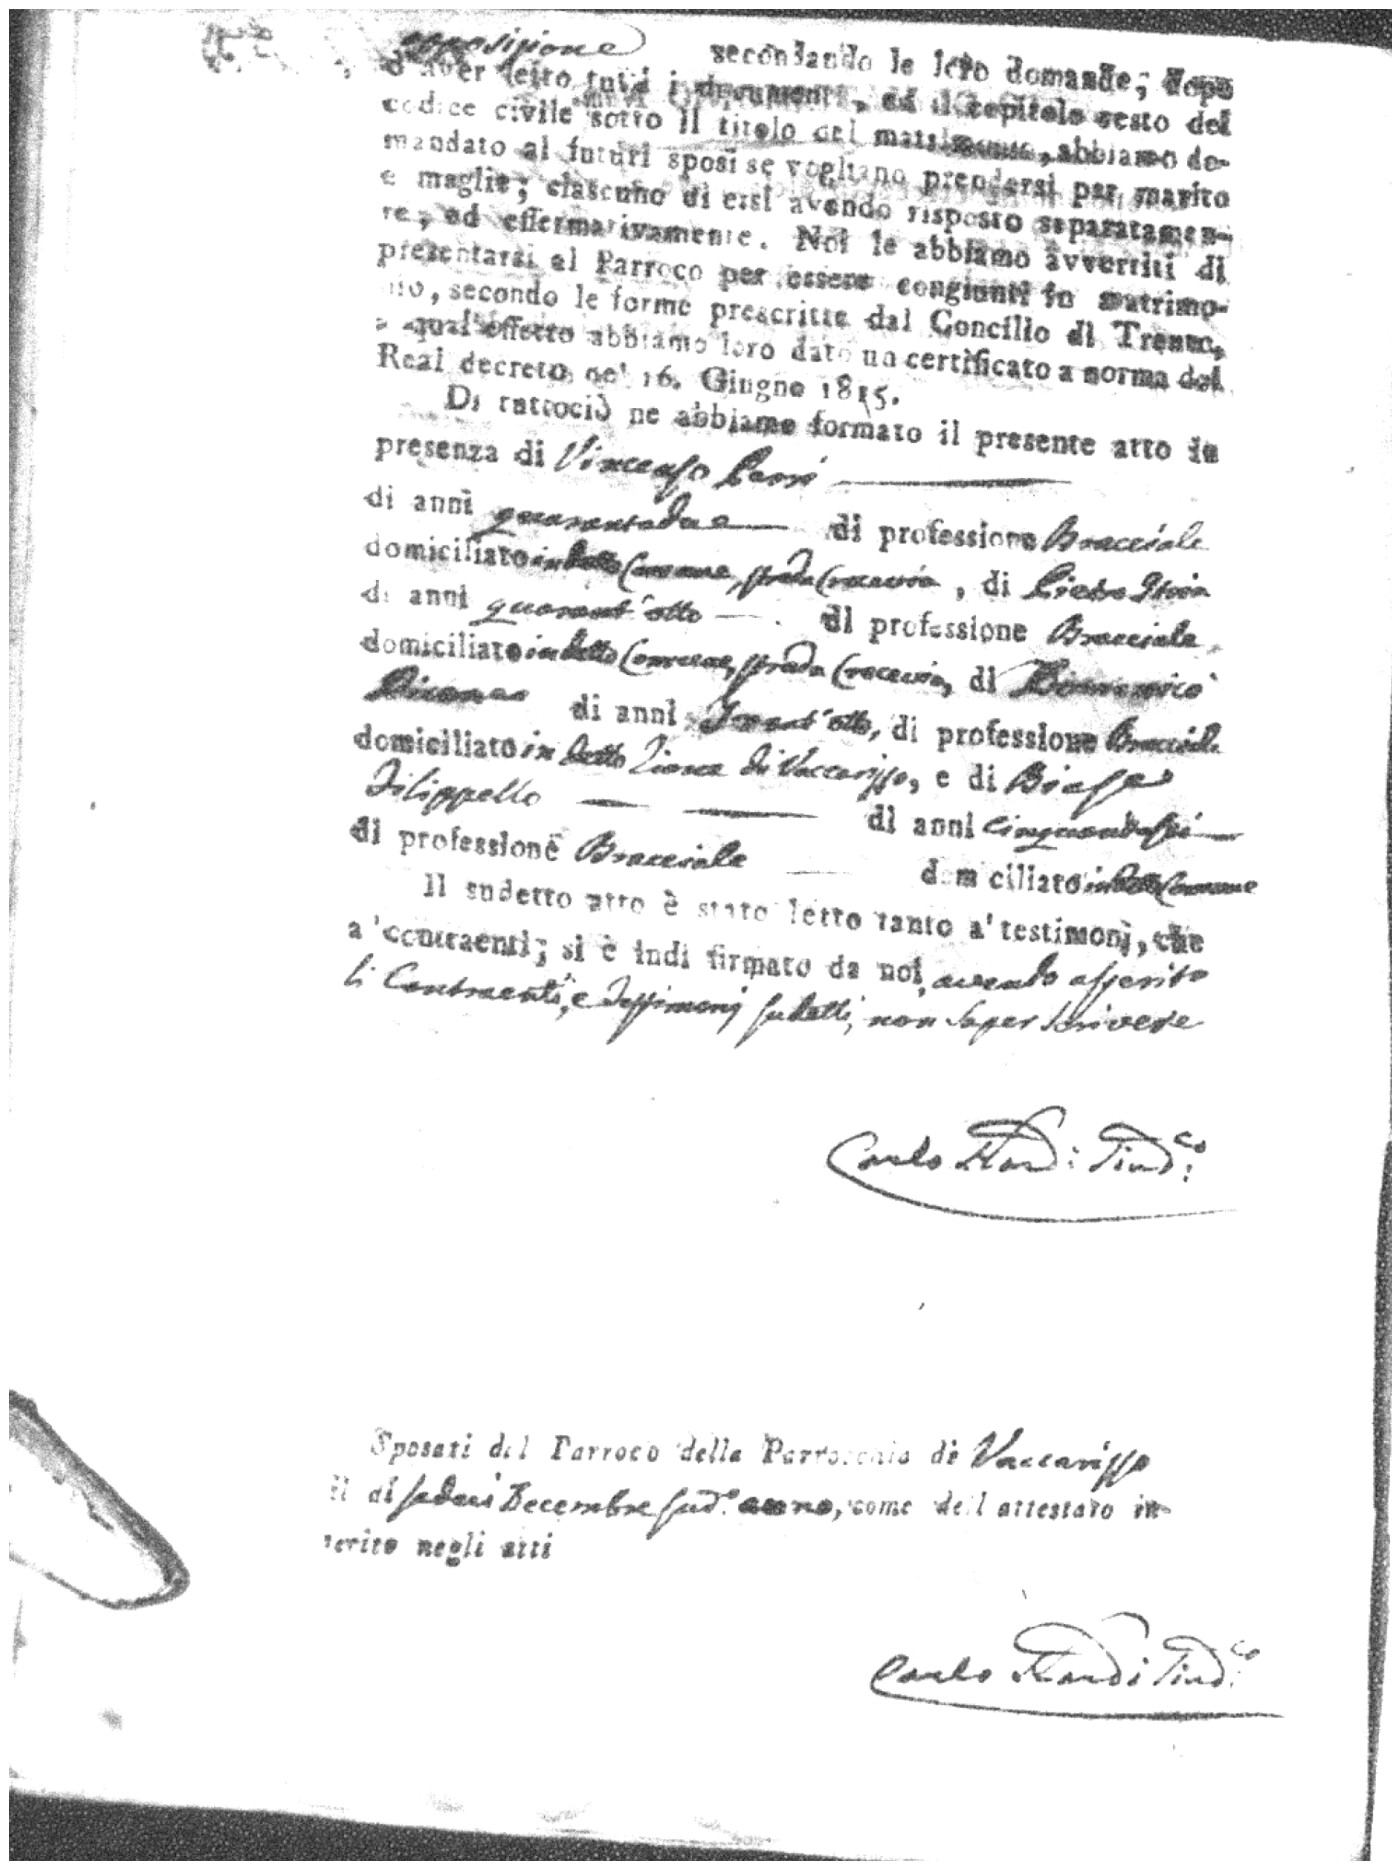 opposizione secondando le loro domande; dopo
d'aver letto tutti i documenti, ed il capitolo sesto del
codice civile sotto il titolo del matrimonio, abbiamo do-
mandato ai futuri sposi se vogliano prendersi per marito
e maglie; ciascuno di essi avendo risposto separatamen-
te, ed effermativamente. Noi le abbiamo avvertiti di
presentarsi al Parroco per essere congiunti in matrimo-
nio, secondo le forme prescritte dal Concilio di Trento,
a qual'effetto abbiamo loro dato un certificato a norma del
Real decreto de' 16. Giugno 1815.
Di tuttociò ne abbiamo formato il presente atto in
presenza di Vincenzo
di anni quarantadue di professione Bracciale
domiciliato in detto Comune, strada Crocevia, di Pietro
di anni quarant'otto di professione Bracciale
domiciliato in detto Comune, strada Crocevia, di Domenico
di anni Trent'otto, di professione Bracciale
domiciliato in detto di Vaccarizzo, e di Biase
Filippello di anni cinquantasei
di professione Bracciale dom ciliato in detto Comune
Il sudetto atto è stato letto tanto a' testimonj, che
a' contraenti; si è indi firmato da noi, avendo asserito
li Contraenti, e Testimonj sudetti, non saper scrivere
Carlo Sind.co
Sposati dal Parroco della Parrocchia di Vaccarizzo
il dì sedeci Decembre sud.o anno, come dell attestato in-
serito negli atti
Carlo Sind.co